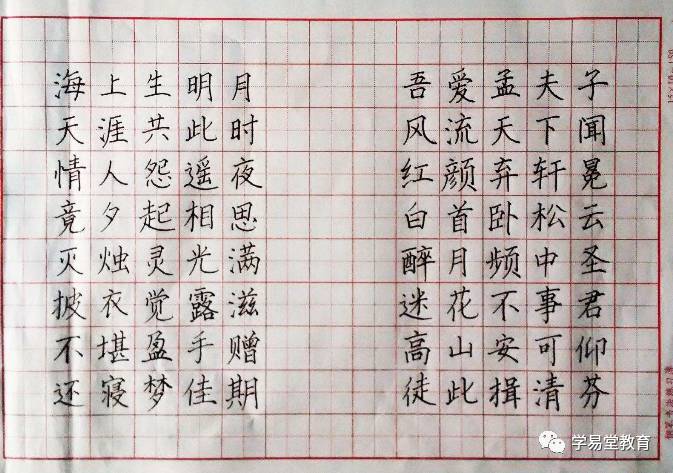 海上生明月
天涯共此时
情人怨遥夜
竟夕起相思
灭烛灵光满
披衣觉露滋
不堪盈手赠
还寝梦佳期
吾爱孟夫子
风流天下闻
红颜弃轩冕
白首卧松云
醉月频中圣
迷花不事君
高山安可仰
徒此揖清芬
学易堂教育